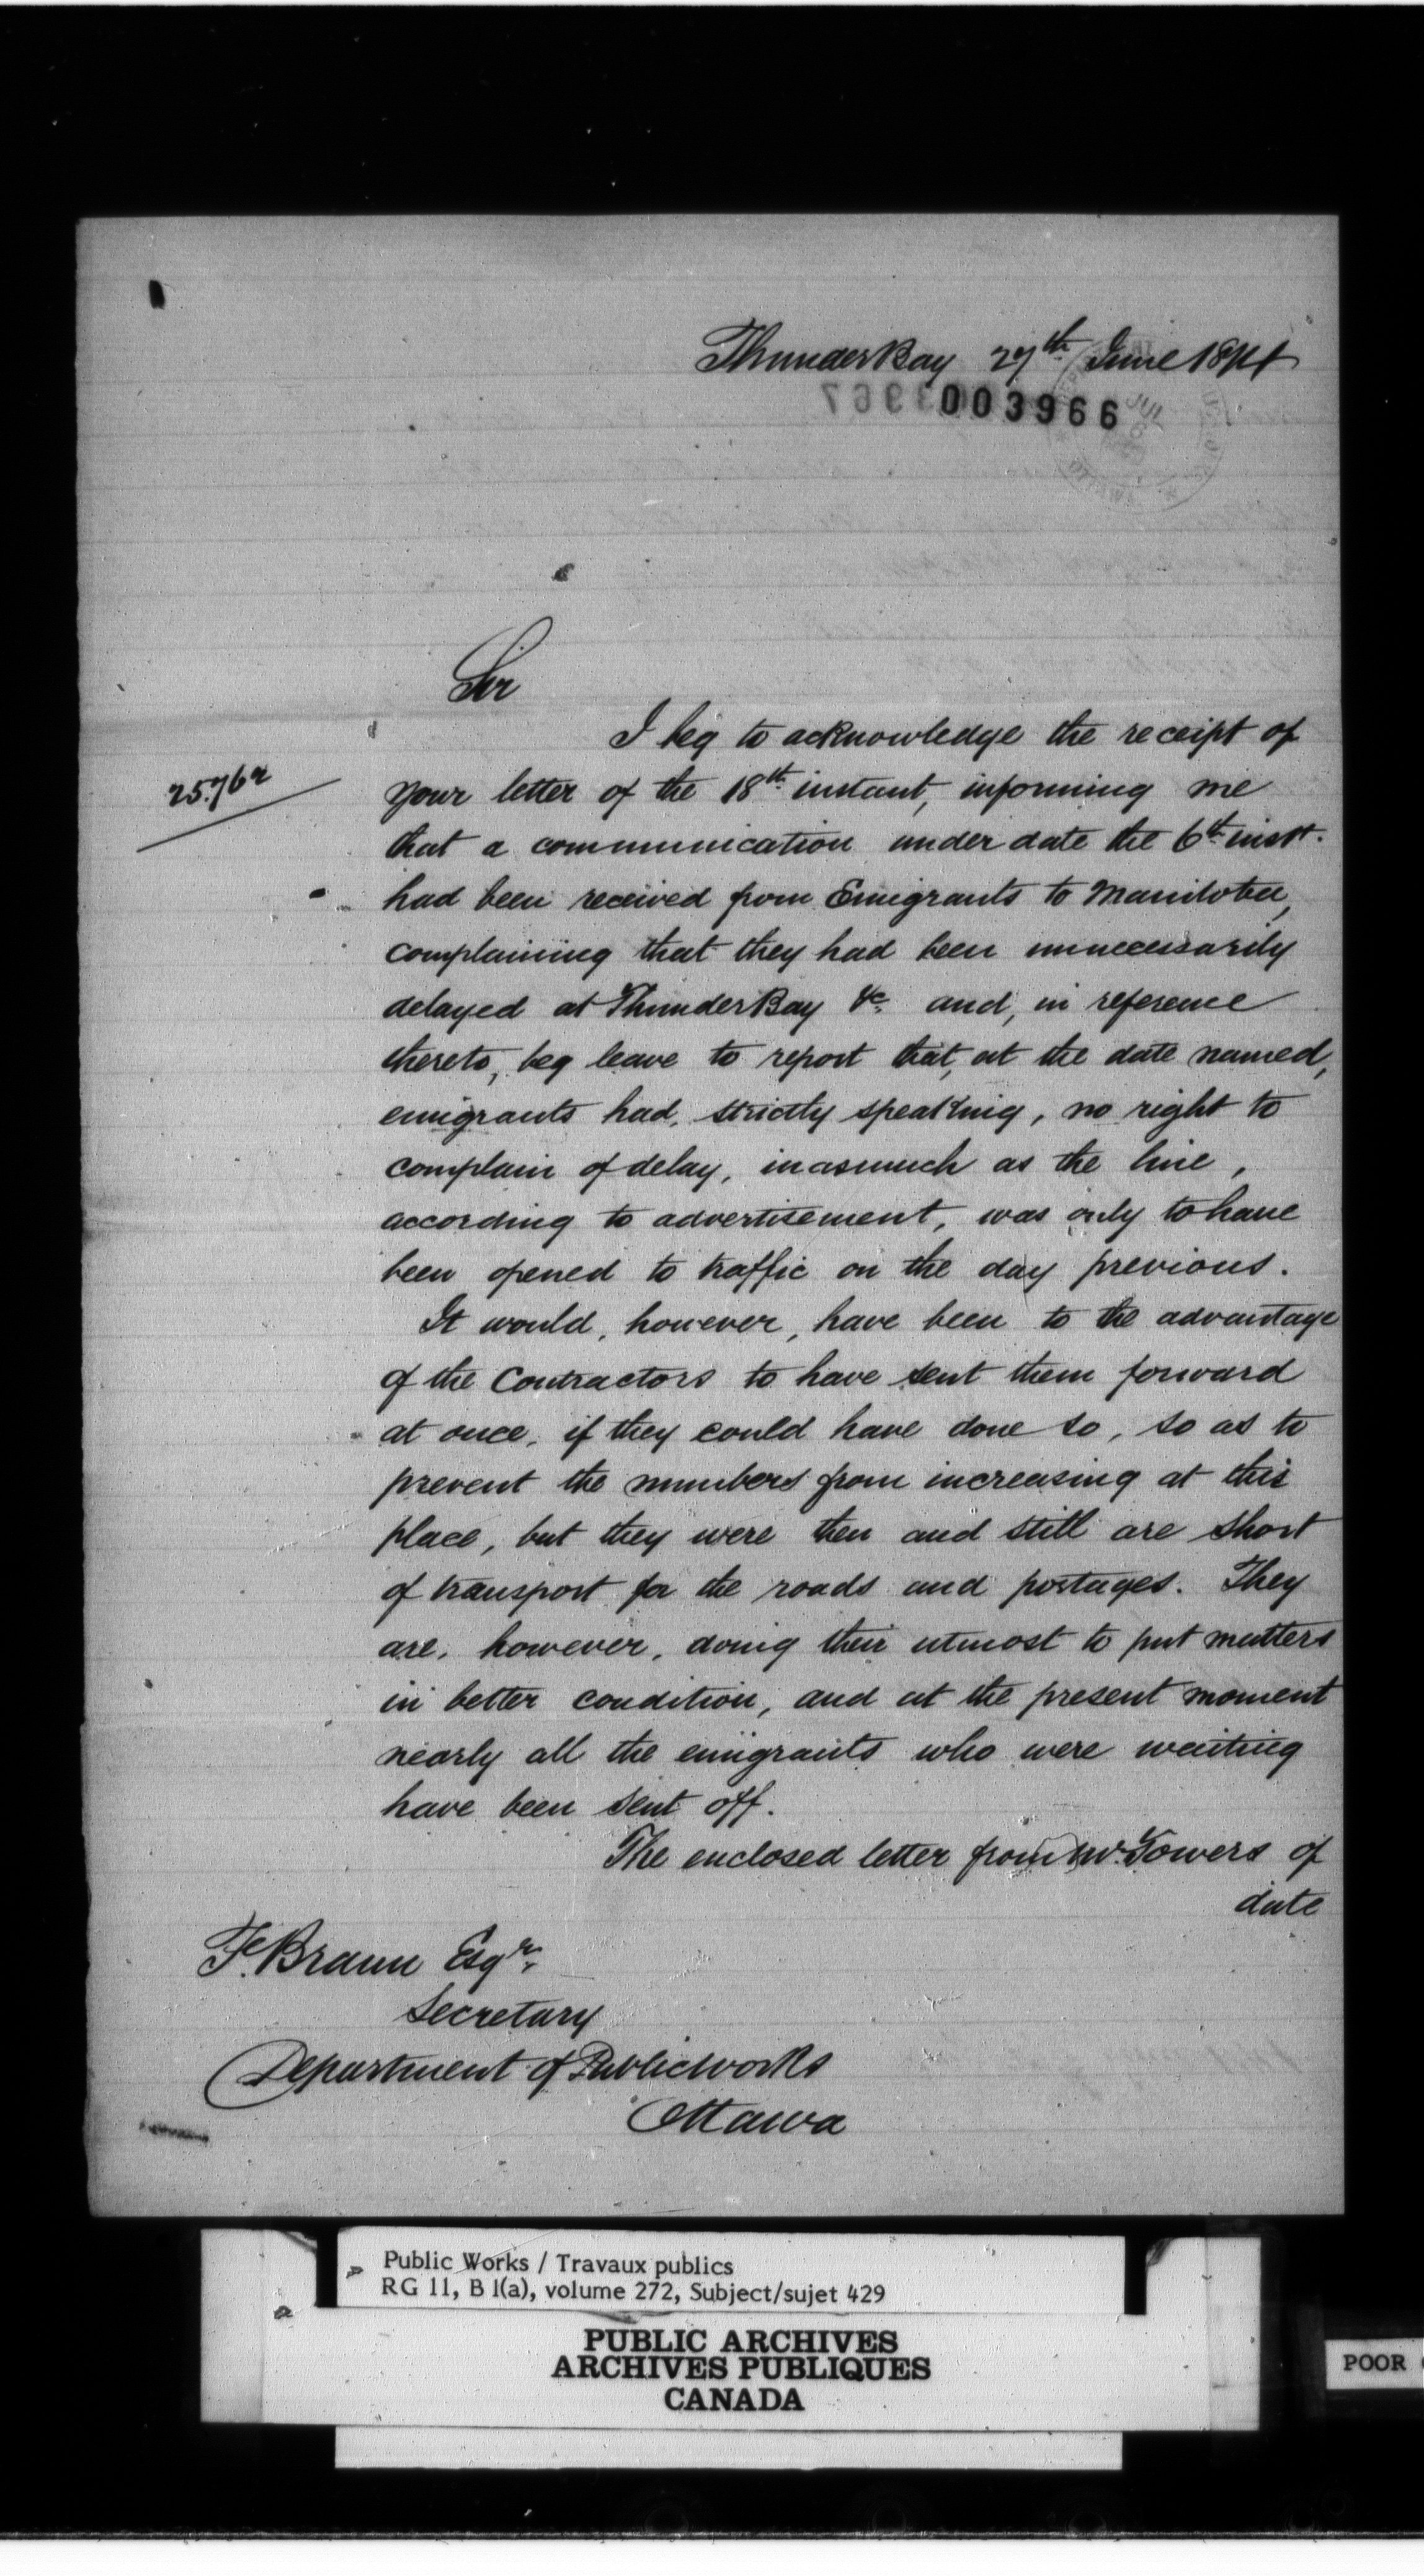 Thunder Bay 27th June 1874
003966
Sir
I beg to acknowledge the receipt of
25.762
your letter of the 18th instant, informing me
that a communication under date the 6th inst.
had been received from Emigrants to Manitoba,
complaining that they had been unnecessarily
delayed at Thunder Bay &c. and, in reference
thereto, beg leave to report that, at the date named,
emigrants had, strictly speaking, no right to
complain of delay, inasmuch as the line,
according to advertisement, was only to have
been opened to traffic on the day previous.
It would, however, have been to the advantage
of the Contractors to have sent them forward
at once, if they could have done so, so as to
prevent the numbers from increasing at this
place, but they were then and still are short
of transport for the roads and portages. They
are, however, doing their utmost to put matters
in better condition, and at the present moment
nearly all the emigrants who were waiting
have been sent off.
The enclosed letter from Mr. Towers of
date
F. Braun Esqr.
Secretary
Department of Public Works
Ottawa
Public Works / Travaux publics
RG 11, B 1(a), volume 272, Subject/sujet 429
PUBLIC ARCHIVES
ARCHIVES PUBLIQUES
CANADA
POOR